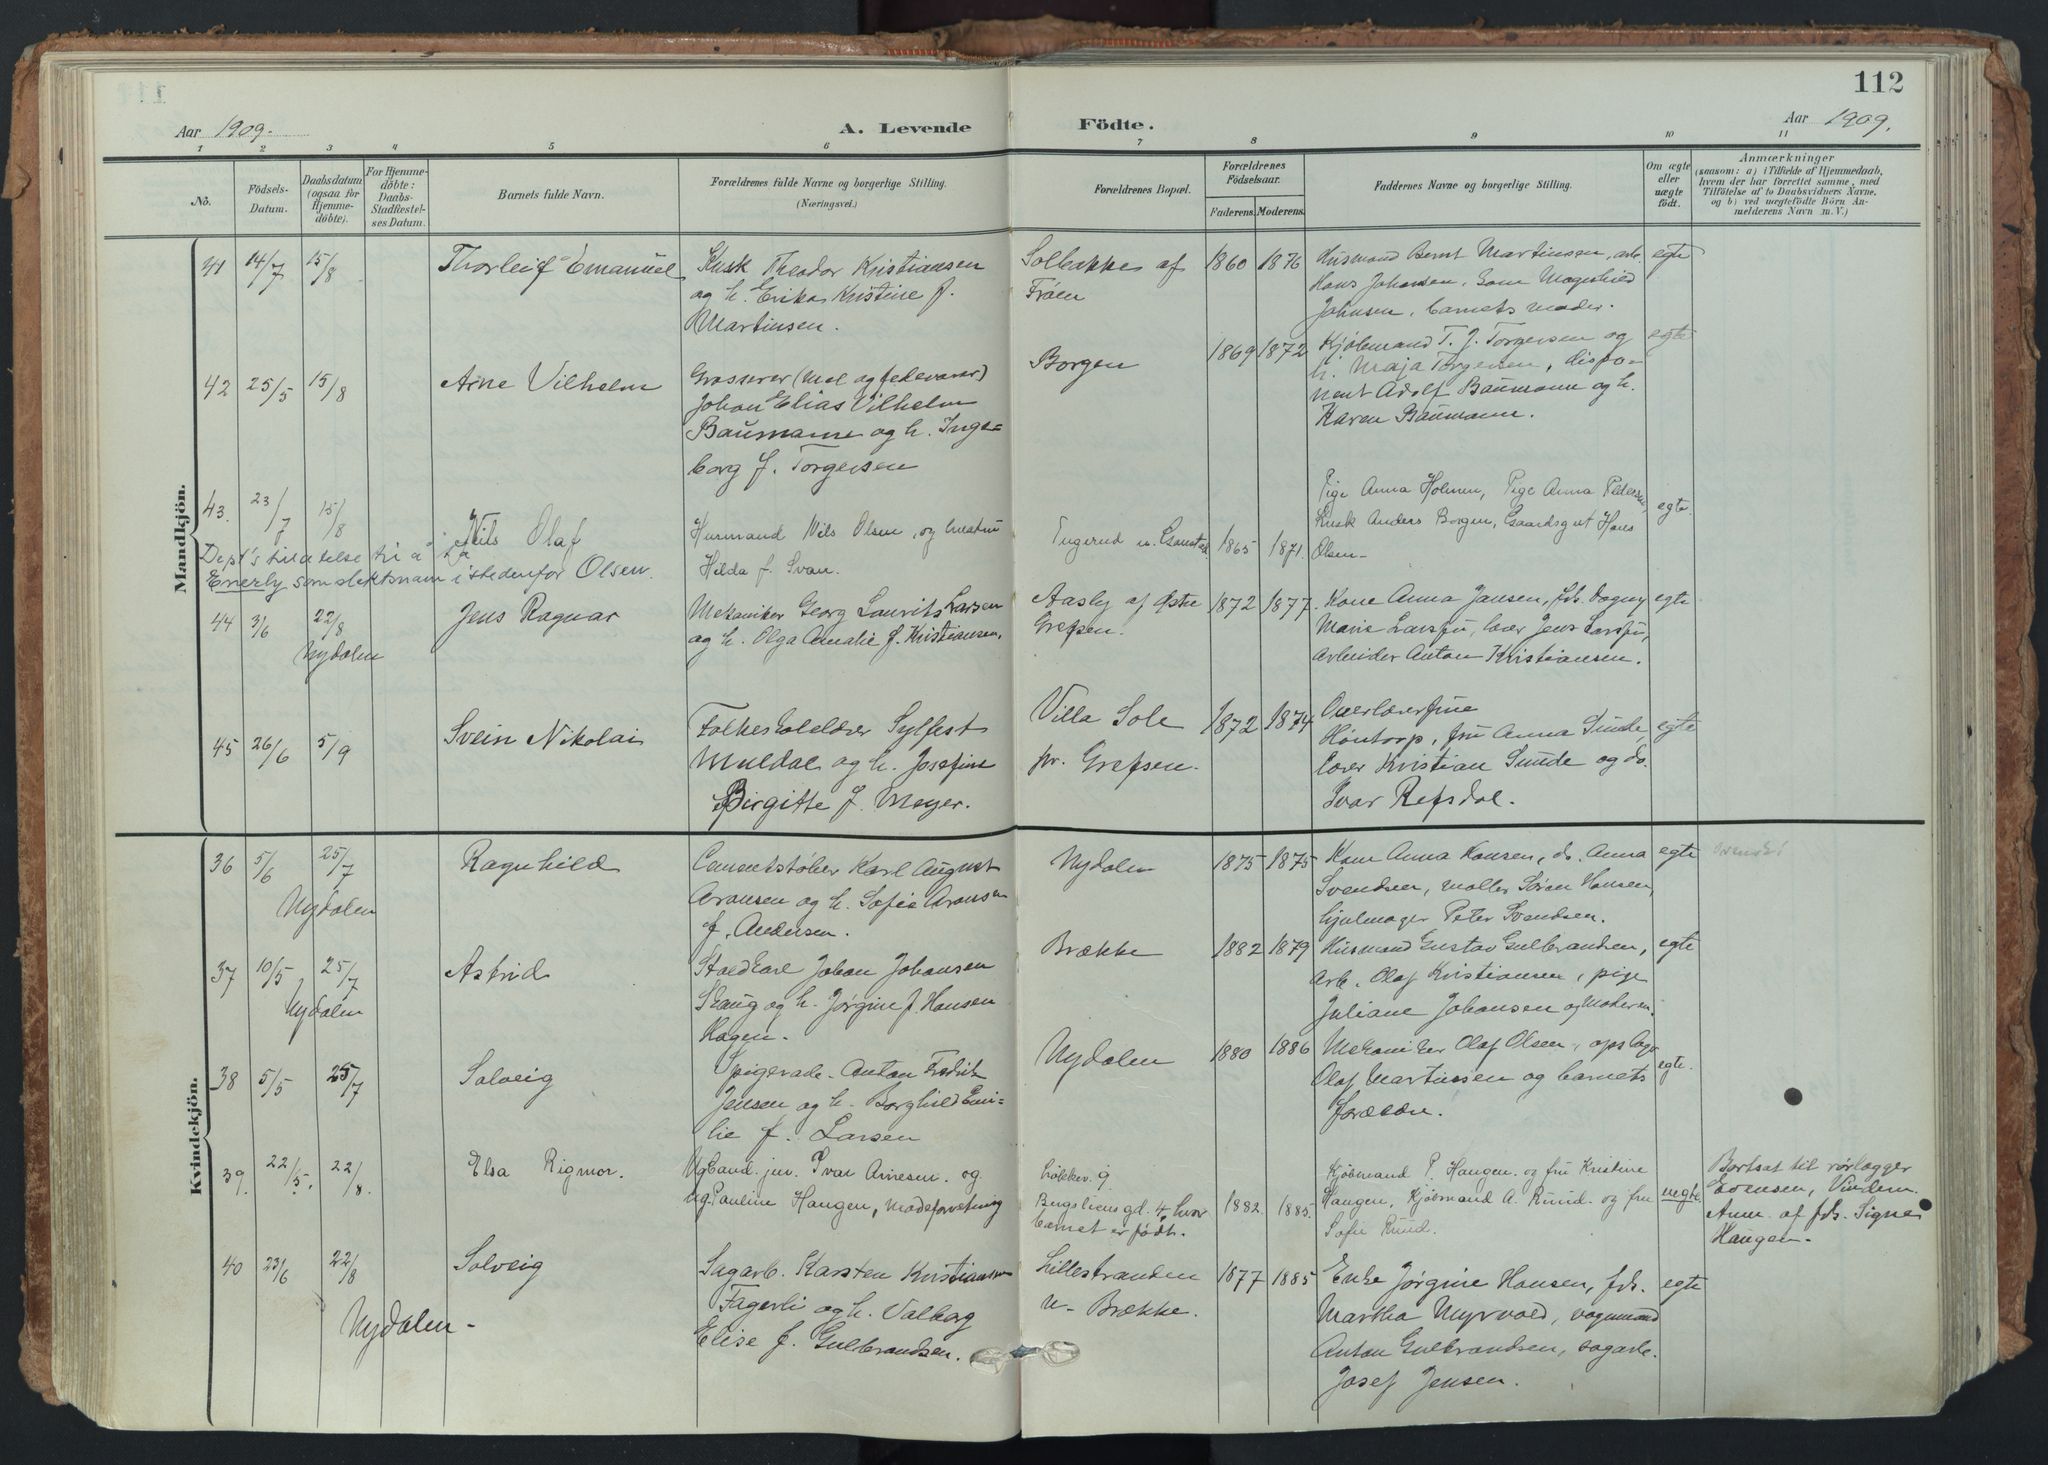 112
Aar 1909.
A. Levende Födte.
Aar 1909.
1 2 3 4 5 6 7 8 9 10 11
No.
Födsels-
Datum.
Daabsdatum
(ogsaa for
Hjemme-
döbte).
For Hjemme-
döbte:
Daabs-
Stadfæstel-
ses Datum.
Barnets fulde Navn.
Forældrenes fulde Navne og borgerlige Stilling.
(Næringsvei.)
Forældrenes Bopæl.
Forældrenes
Födselsaar.
Faderens. Moderens.
Faddernes Navne og borgerlige Stilling.
Om ægte
eller
uægte
födt.
Anmærkninger
(saasom: a) i Tilfælde af Hjemmedaab,
hvem der har forrettet samme, med
Tilföielse af to Daabsvidners Navne.
og b) ved uægtefödte Börn An-
melderens Navn m. V.)
Mandkjön.
41 14/7 15/8
Thorleif Emanuel
Kusk Theodor Kristiansen
og h. Erika Kristine f.
Martinsen.
Solbakken af
Frøen
1860 1876
Husmand Bernt Martinsen, arb.
Hans Johansen,
Johnsen, barnets moder.
egte
42 25/5 15/8
Arne Vilhelm
Grosserer (mel og fedevarer)
Johan Elias Vilhelm
Baumann og h. Inge=
borg f. Torgersen
Borgen
1869 1872
Kjøbmand T. J. Torgersen og
h. Maja Torgersen, dispo-
nent Adolf Baumann og h.
Karen Baumann.
egte
43. 23/7 15/8
Nils Olaf
Husmand Nils Olsen, og hustru
Hilda f. Svan.
Tugerud
1865 1871.
Pige Anna Holmen, Pige Anna Pedersen,
Kusk Anders Borgen, Gaardsgut Hans
Olsen-
egte.
Dept's tillatelse til å ta
Enerly som slektsnavn istedenfor Olsen.
44 3/6 22/8
Nydalen
Jens Ragnar
Mekaniker Georg Laurits Larsen
og h. Olga Amalie f. Kristiansen.
Aasly af Østre
Grefsen.
1872 1877.
Kone Anna Jansen, frk. Dagny
Marie Larssen, lærer Jens Larssen,
Arbeider Anton Kristiansen.
egte
45 26/6 5/9
Svein Nikolai
Folkeskolelærer Sylfest
Muldal og h. Josefine
Birgitte f. Meyer.
Villa Sole
pr. Grefsen.
1872 1874
Overlærer
Høntorp, fru Anna Sunde,
lærer Kristian Sunde og do.
Ivar Refsdal.
egte
Kvindekjön.
36 5/6 25/7
Nydalen
Ragnhild
Cementstøber Karl August
Aronsen og h. Sofie Aronsen
f. Andersen.
Nydalen
1875 1875
Kone Anna Hansen, do. Anna
Svendsen, møller Søren Hansen,
hjulmager Peter Svendsen.
egte
37 10/5 25/7
Nydalen
Astrid
Staldkarl Johan Johansen
Skaug og h. Jørgine f. Hansen
Hagen.
Brække
1882 1879
Husmand Gustav Gulbrandsen,
Arb. Olaf Kristiansen, pige
Juliane Johansen og Moderen.
egte
38 5/5 25/7
Solveig
Spigerarb. Anton Fredrik
Jensen og h. Borghild Emi-
lie f. Larsen
Nydalen
1880 1886
Mekaniker Olaf Olsen,
Olaf Martinsen og barnets
forældre.
egte.
39. 22/5. 22/8.
Elsa Rigmor.
Ugband. jur. Ivar Arnesen. og
Ug. Pauline Haugen, Modeforretning
Løkkev. 9
4, hvor
barnet er født.
1882. 1885.
Kjøbmand P. Haugen. og fru Kristine
Haugen, Kjøbmand A. Ruud. og fru
Sofie Ruud.
uegte
Bortsat til rørlægger
Evensen, Vindern.
Anm. af frk. Signe
Haugen.
40 23/6 22/8
Nydalen-
Solveig
Sagarb. Karsten Kristiansen
Fagerli og h. Valborg
Elise f. Gulbrandsen.
Lillestranden
u- Brække.
1877 1885
Enke Jørgine Hansen, frk.
Martha Myrvold, vognmand
Anton Gulbrandsen, sagarb.
Josef Jensen.
egte